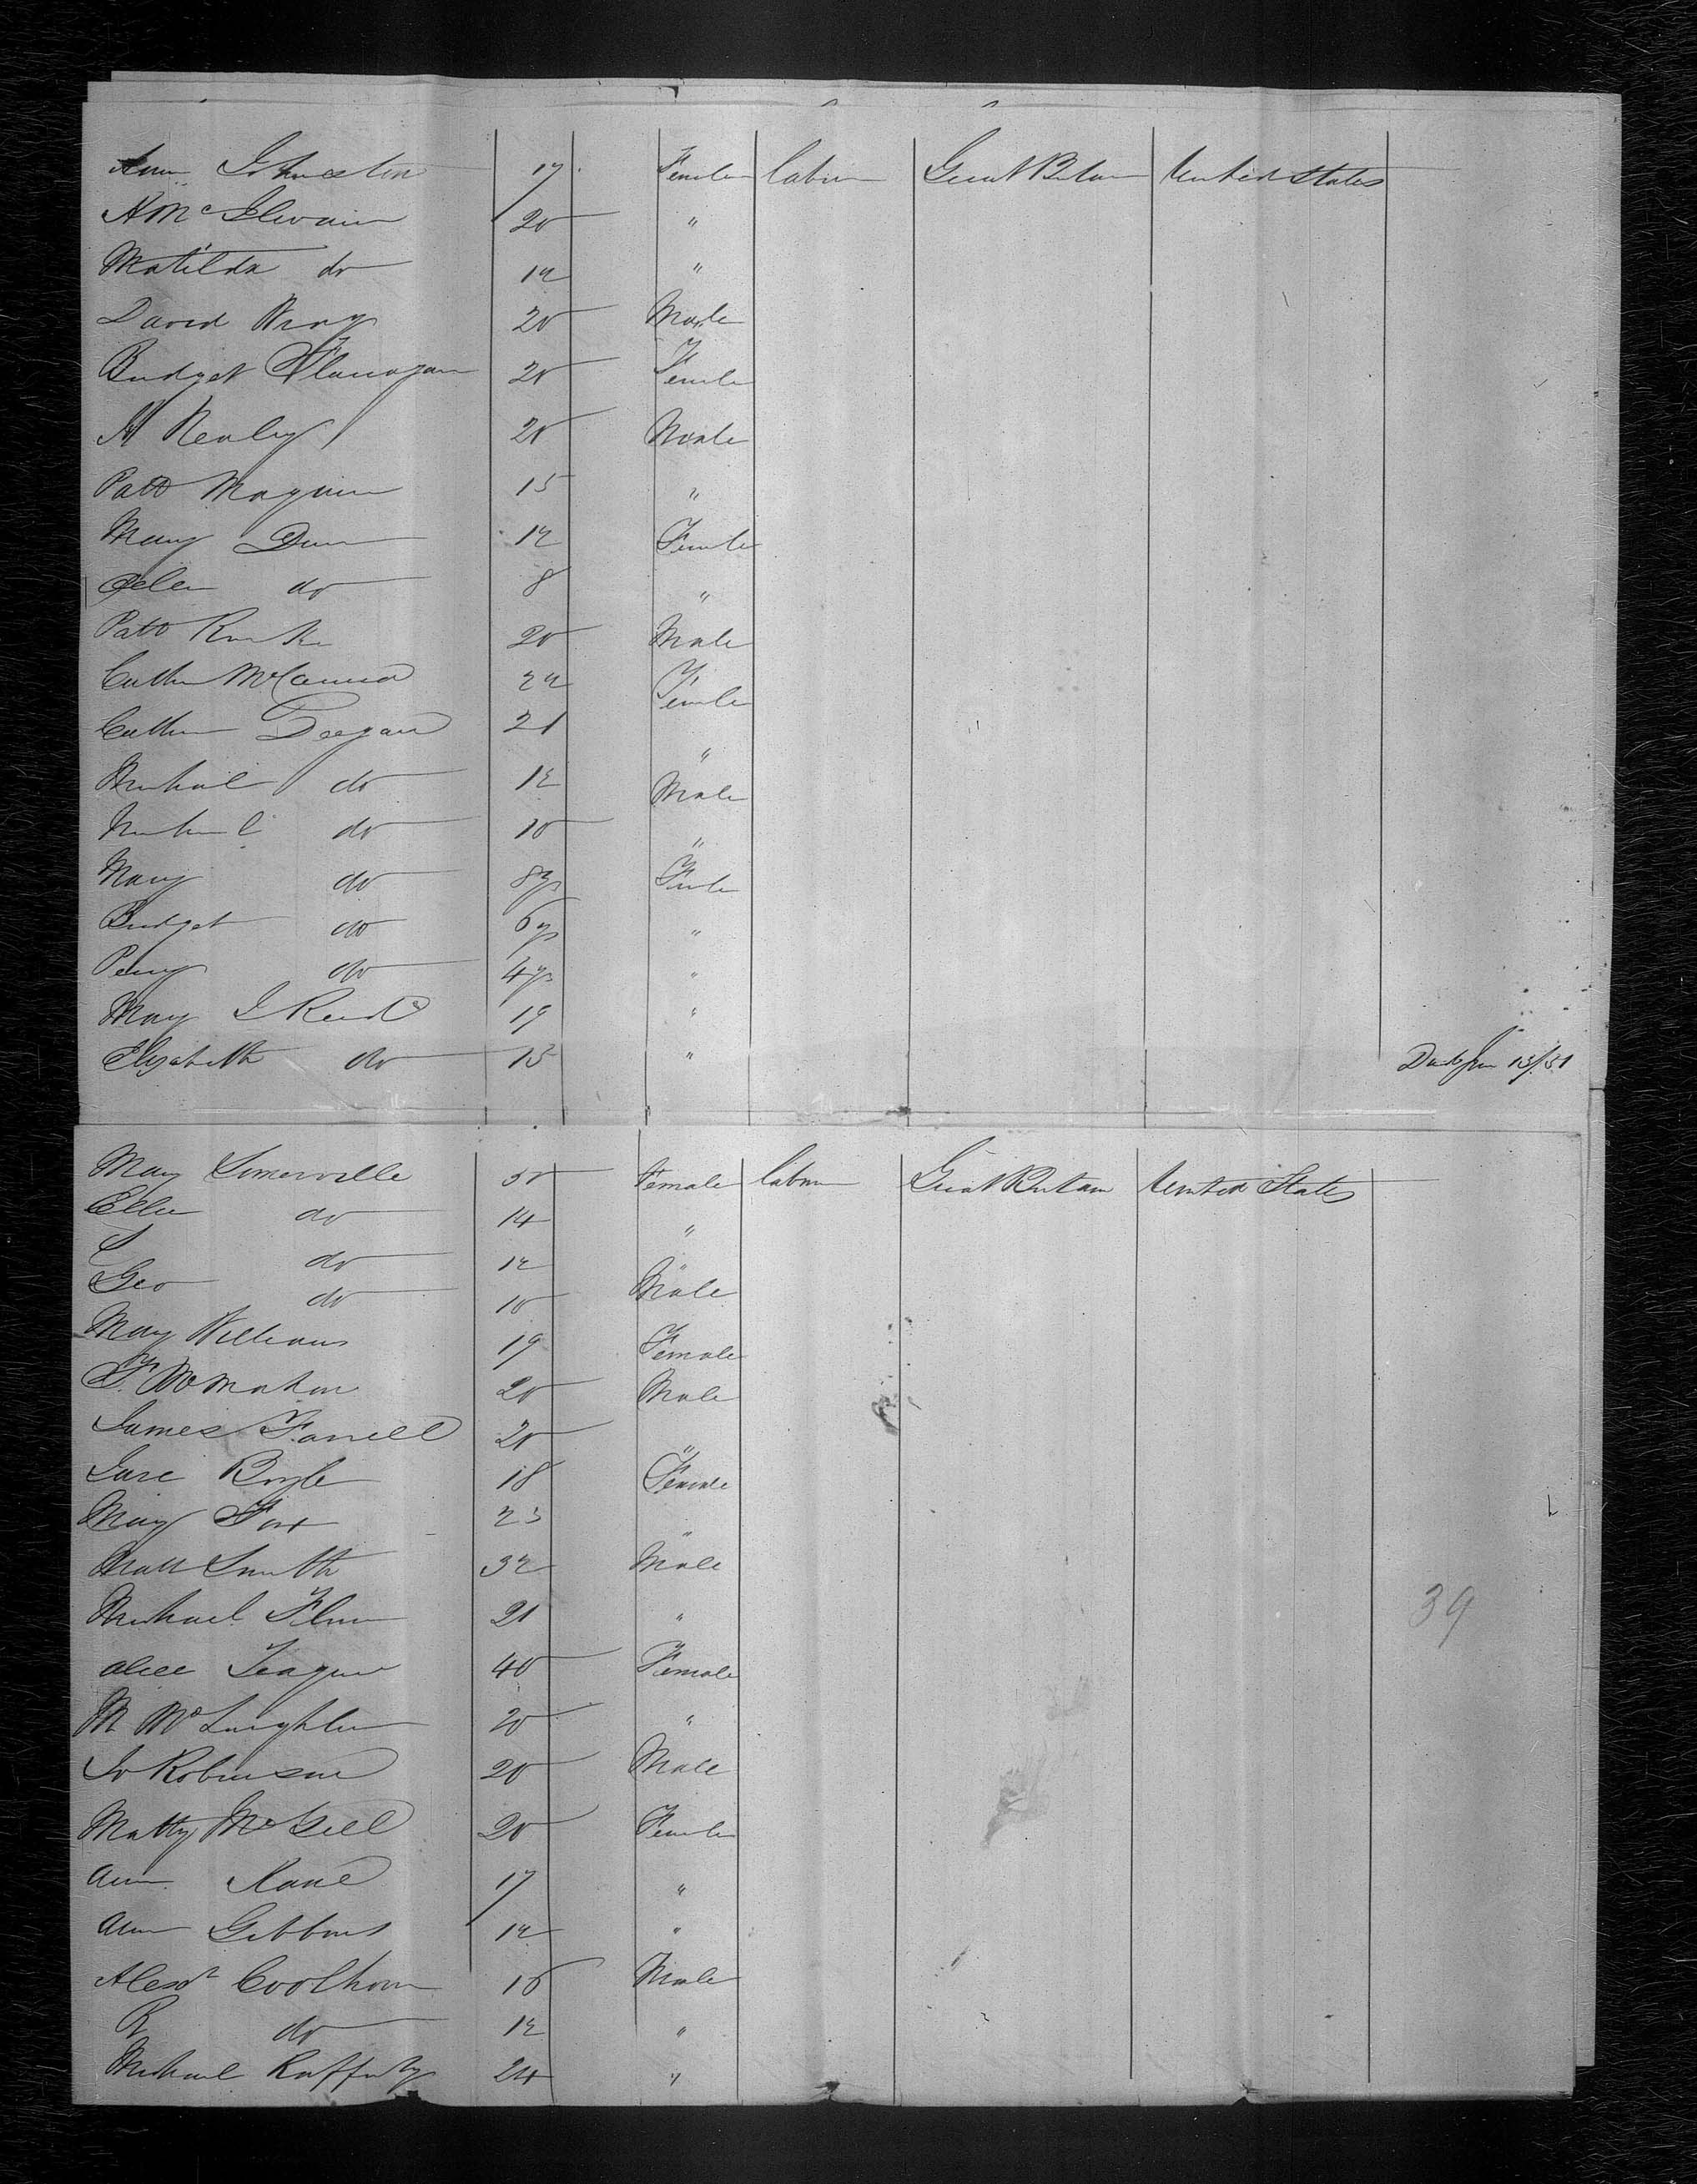 Ann Johnston 17 Female Labor Great Britain United States
A McIlwain 20 "
Matilda do 12 "
David Wray 20 Male
Bridget Flanagan 20 Female
H Nealy 20 Male
Patt Maguire 15 "
Mary Dunn 12 Female
Ellen do 8 "
Patt Rourke 20 Male
Cathn McCanna 22 Female
Cathn Deegan 21 "
Michael do 12 Male
do 10 "
Mary do 8 ys Female
Bridget do 6 ys "
Peny do 4 ys "
Mary J Reid 19 "
Elizabeth do 15 " Died Jan 13/51
Mary Somerville 30 Female Labor Great Britain United States
Ellen do 14 "
S do 12 "
Geo do 10 Male
Mary Williams 19 Female
F. McMahon 20 Male
James Farrell 20 "
Jane Boyle 18 Female
Mary Fox 23 "
Matt Smith 32 Male
Michael Flinn 21 "
39
Alice Teague 40 Female
M McLaughlin 20 "
Jo Robinson 20 Male
Matty McGill 20 Female
Ann Kane 17 "
Ann Gibbons 12 "
Alexr Coolhoun 16 Male
R do 12 "
Michael Rafferty 24 "